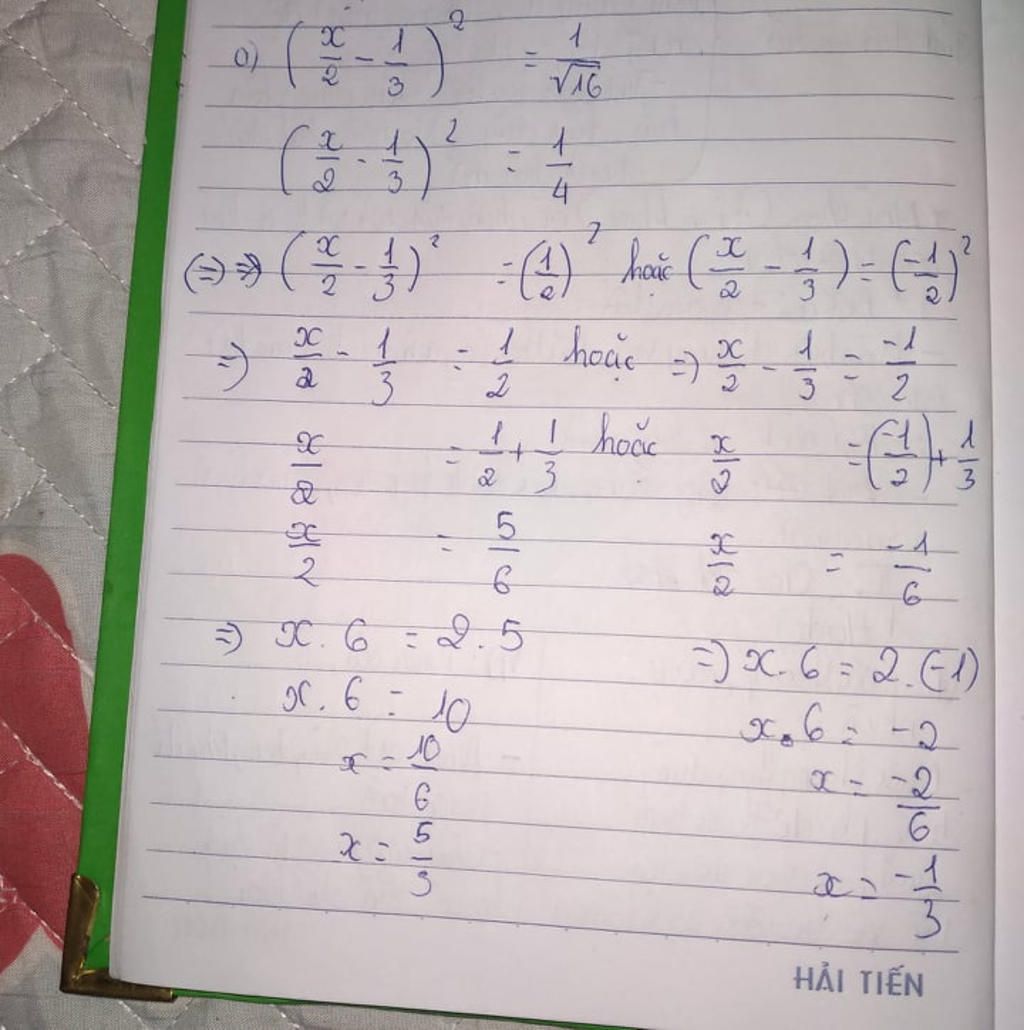 a) (x/2 - 1/3)² = 1/√16
(x/2 - 1/3)² = 1/4
(=) => (x/2 - 1/3)² = (1/2)² hoặc (x/2 - 1/3) = (-1/2)²
=) x/2 - 1/3 = 1/2 hoặc =) x/2 - 1/3 = -1/2
x/2 = 1/2 + 1/3 hoặc x/2 = (-1/2) + 1/3
x/2 = 5/6 x/2 = -1/6
=) x . 6 = 2 . 5 =) x . 6 = 2 . (-1)
x . 6 = 10 x . 6 = -2
x = 10/6 x = -2/6
x = 5/3 x = -1/3
HẢI TIẾN